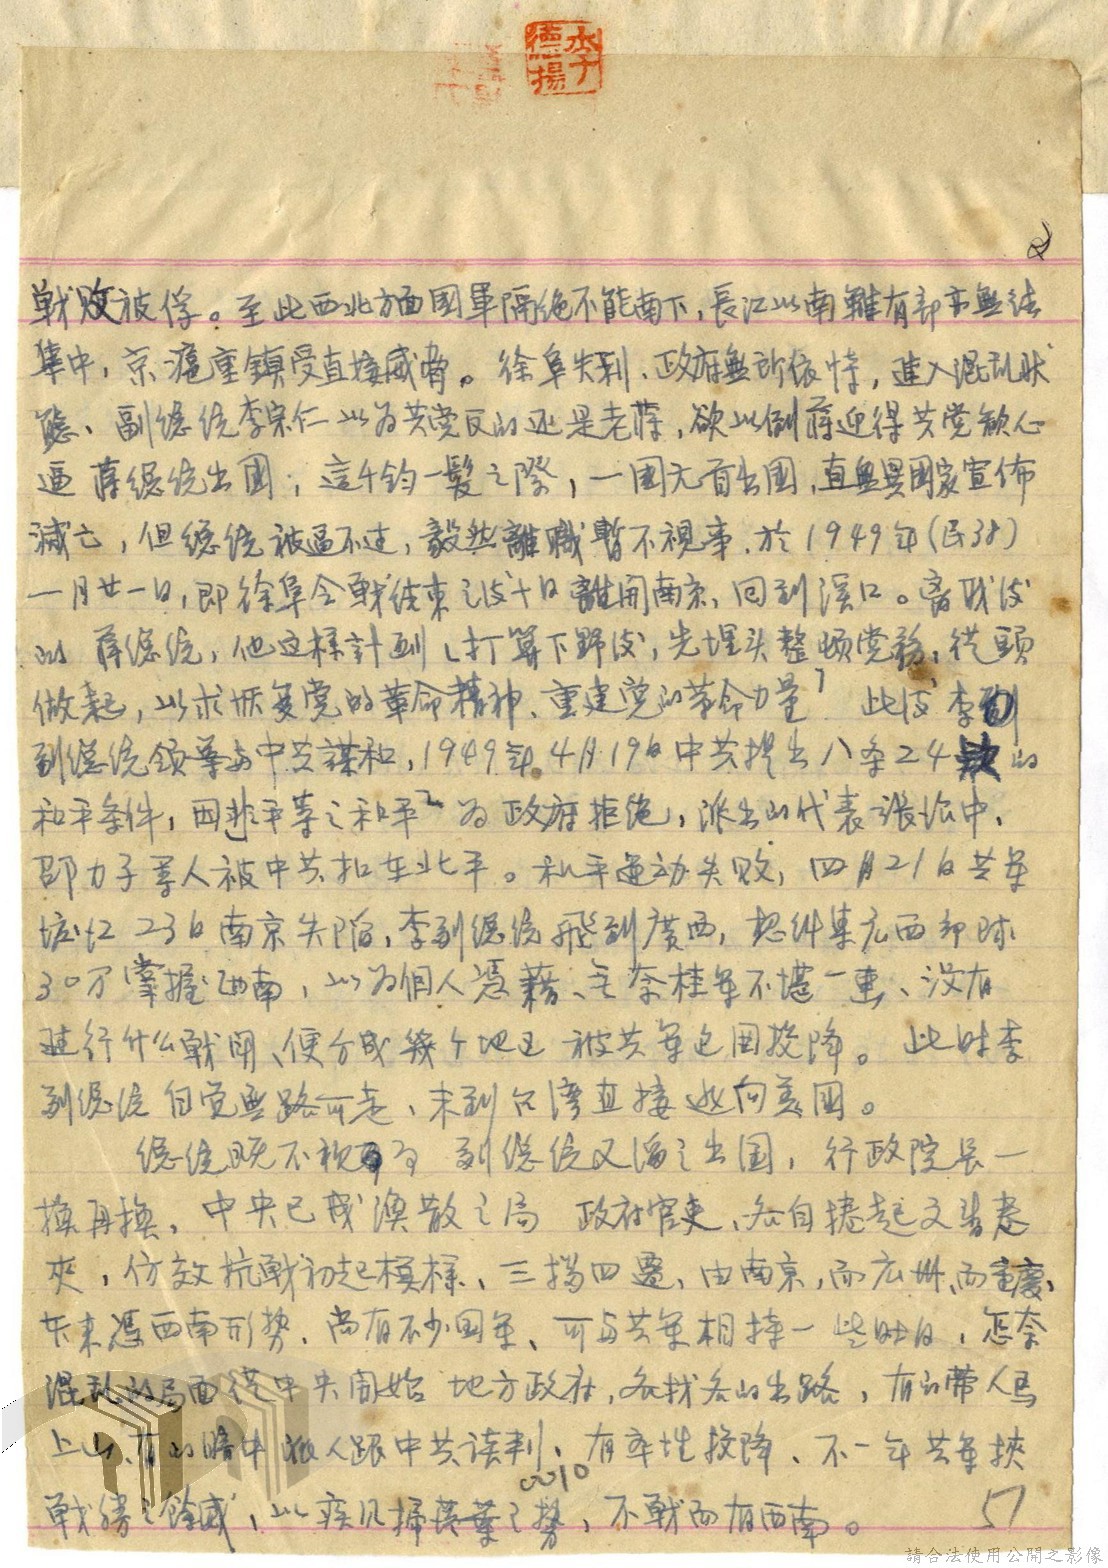 李德揚
2
戰敗被俘。至此西北方面國軍隔絕不能南下,長江以南雖有部亦無法
集中,京滬重鎮受直接威脅。徐阜失利、政府無所依恃,進入混乱狀
態、副總統李宗仁以為共党反的还是老蔣,欲以倒蔣迎得共党歡心
逼蔣總統出國;這千鈞一髮之際,一國元首出國,直無異國家宣佈
滅亡,但總統被逼不过,毅然離職暫不視事、於1949年(民38)
一月廿一日,即徐阜会戰結束之後十日離開南京,回到溪口。离职後
的蔣總統,他这樣計劃「打算下野後,先埋头整頓党務,從頭
做起,以求恢复党的革命精神、重建党的革命力量」此後李副
副總統領導与中共謀和,1949年4月19日中共提出八条24款的
和平条件,因非平等之和平 为政府拒絕,派出的代表張治中,
邵力子等人被中共扣在北平。和平运动失敗,四月21日共軍
渡江23日南京失陷,李副總統飛到廣西,想糾集广西部隊
30万掌握西南,以为個人憑藉、无奈桂軍不堪一擊、没有
進行什么戰鬥、便分成幾个地区被共軍包圍投降。此时李
副總統自覚無路可走、未到台湾直接逃向美國。
總統既不視事 副總統又溜之出国,行政院長一
換再換,中央已成渙散之局 政府官吏、各自捲起文書卷
夾,仿效抗戰初起模樣、三擋四遷、由南京,而広州、而重慶、
本来憑西南形势、尚有不少国軍、可与共軍相持一些时日,怎奈
混乱的局面從中央開始 地方政府,各找各的出路,有的带人馬
上山、有的暗中派人跟中共谈判、有率性投降、不一年共軍挾
戰勝之餘威,以疾风掃落葉之勢,不戰而有西南。
0010
57
請合法使用公開之影像